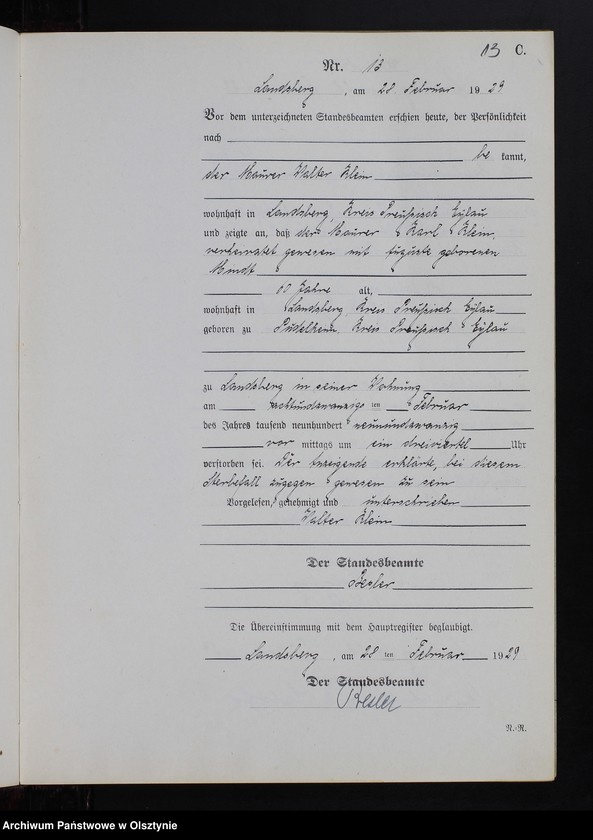 13 C.
Nr. 13
Landsberg, am 28. Februar 1929
Vor dem unterzeichneten Standesbeamten erschien heute, der Persönlichkeit
nach
be kannt,
der Maurer Walter Klein
wohnhaft in Landsberg, Kreis Preußisch Eylau
und zeigte an, daß der Maurer Karl Klein,
verheiratet gewesen mit Auguste geborenen
Mindt
60 Jahre alt,
wohnhaft in Landsberg, Kreis Preußisch Eylau
geboren zu Kreis Preußisch Eylau
zu Landsberg in seiner Wohnung
am achtundzwanzigs ten Februar
des Jahres tausend neunhundert neunundzwanzig
vor mittags um ein dreiviertel Uhr
verstorben sei. Der Anzeigende erklärte, bei diesem
Sterbefall zugegen gewesen zu sein
Vorgelesen, genehmigt und unterschrieben
Walter Klein
Der Standesbeamte
Besler
Die Übereinstimmung mit dem Hauptregister beglaubigt.
Landsberg, am 28 ten Februar 1929
Der Standesbeamte
Besler
N.-R.
Archiwum Państwowe w Olsztynie